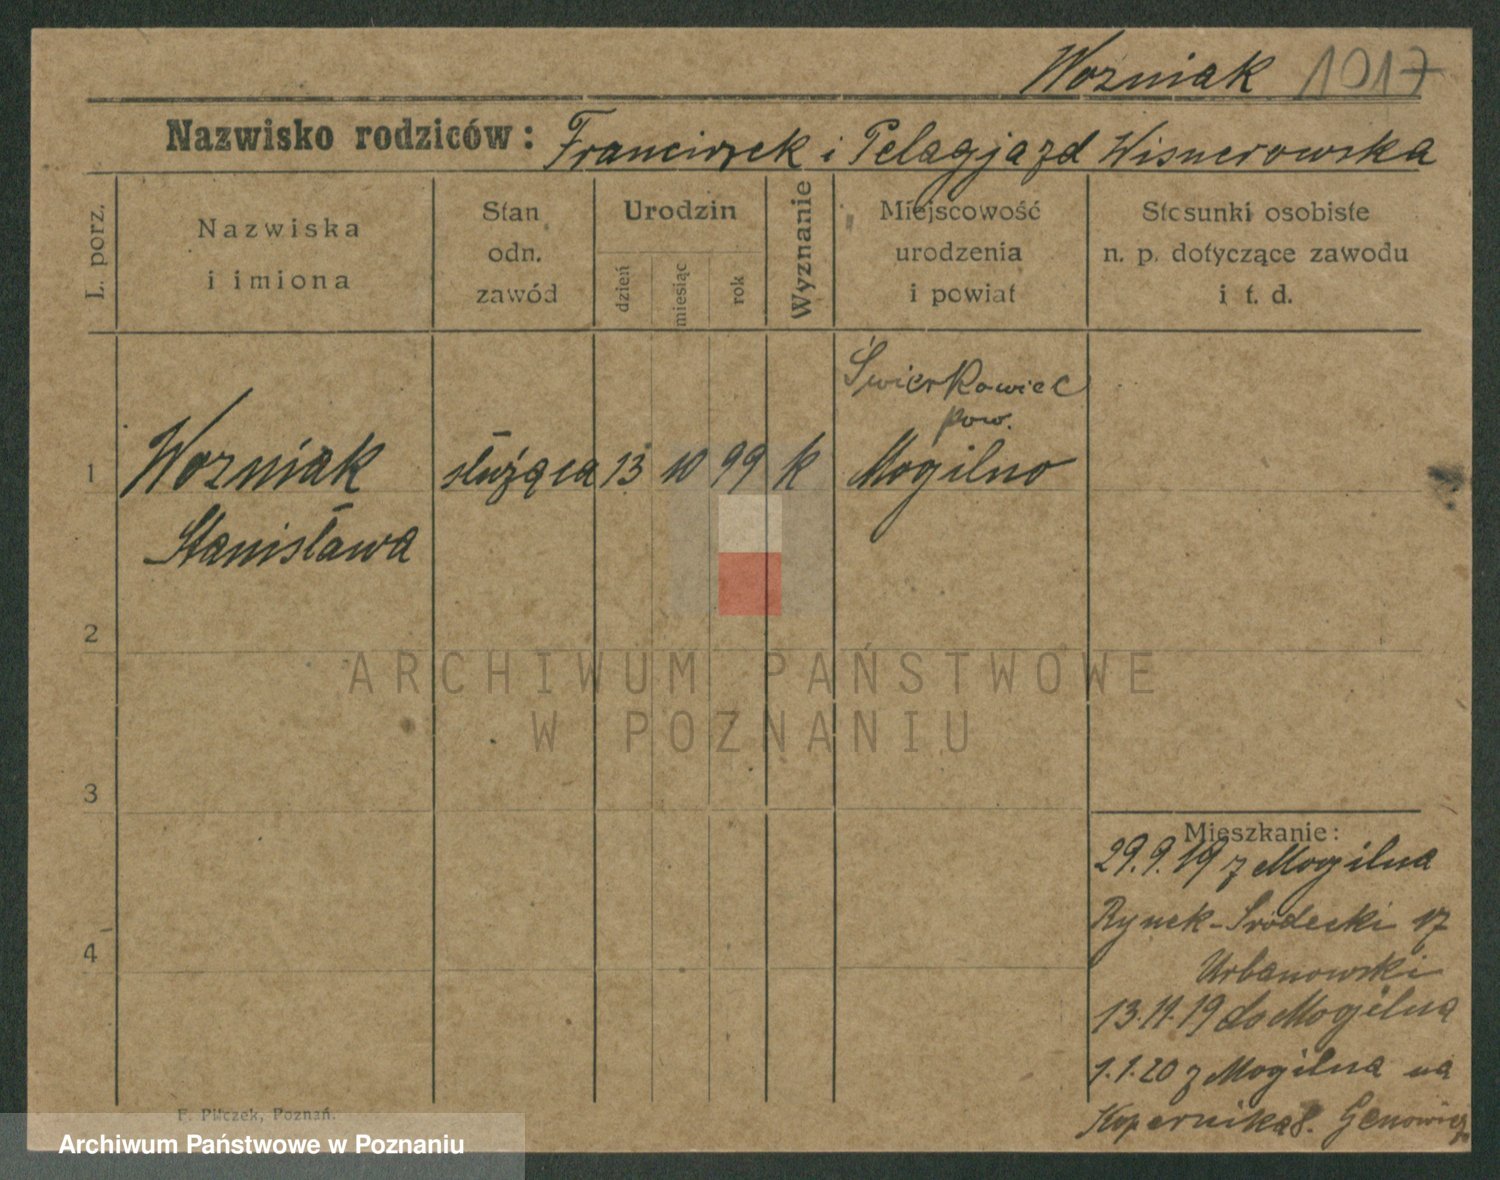 Woźniak 1017
Nazwisko rodziców: Franciszek i Pelagja zd Wisnerowska
L. porz.
Nazwiska
i imiona
Stan
odn.
zawód
Urodzin
dzień
miesiąc
rok
Wyznanie
Miejscowość
urodzenia
i powiat
Stosunki osobiste
n. p. dotyczące zawodu
i t. d.
Świerkowiec
pow.
1 Wozniak służąca 13 10 99 k Mogilno
Stanisława
2
ARCHIWUM PAŃSTWOWE
W POZNANIU
3
Mieszkanie:
29.9.19 z Mogilna
Rynek-Srodecki 17
4
Urbanowski
13.11.19 do Mogilna
1.1.20 z Mogilna na
Kopernika 8.
F. Pilczek, Poznań.
Archiwum Państwowe w Poznaniu